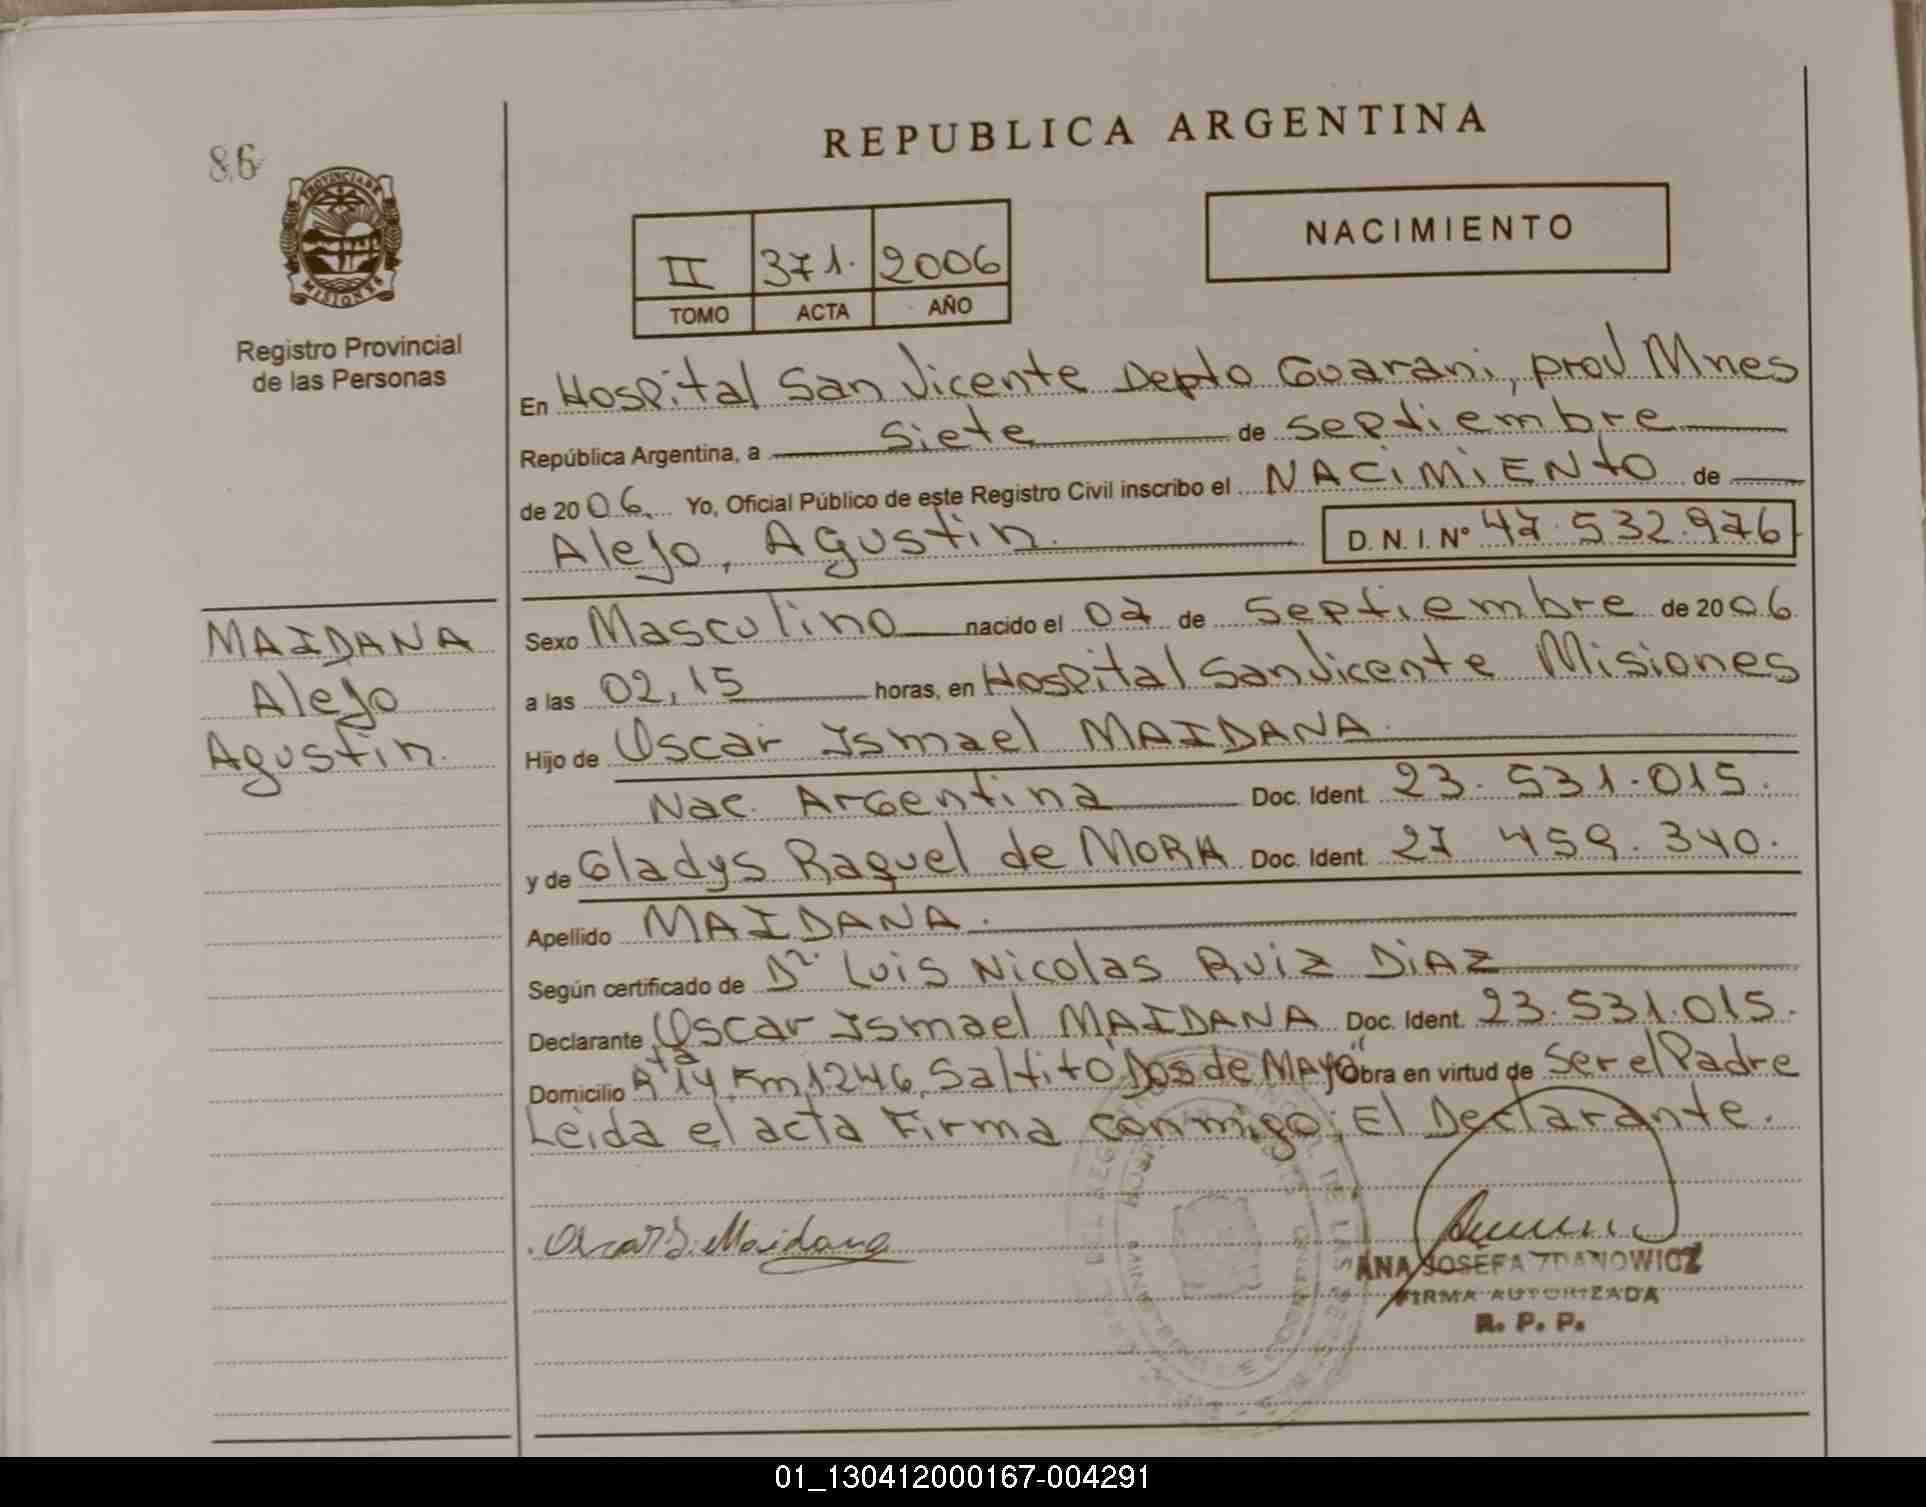 86
PROVINCIA DE
MISIONES
Registro Provincial
de las Personas
REPUBLICA ARGENTINA
II 371. 2006
TOMO ACTA AÑO
NACIMIENTO
En Hospital San Vicente Depto Guarani, prov Mnes
República Argentina, a siete de septiembre
de 2006. Yo, Oficial Público de este Registro Civil inscribo el NACIMIENTO de
Alejo, Agustin. D.N.I. Nº 47.532.976
MAIDANA
Alejo
Agustin.
Sexo Masculino nacido el 07 de Septiembre de 2006.
a las 02,15 horas, en Hospital San Vicente Misiones
Hijo de Oscar Ismael MAIDANA.
Nac. Argentina Doc. Ident. 23.531.015.
y de Gladys Raquel de MORA Doc. Ident. 27 459.340.
Apellido MAIDANA.
Según certificado de Dr. Luis Nicolas Ruiz DiAZ
Declarante Oscar Ismael MAIDANA Doc. Ident. 23.531.015.
Domicilio Rta 14 Km 1246, Saltito Dos de Mayo" Obra en virtud de Ser el Padre
Leida el acta Firma conmigo; El Declarante.
Oscar I. Maidana
ANA JOSEFA ZDANOWICZ
FIRMA AUTORIZADA
R. P. P.
01_130412000167-004291